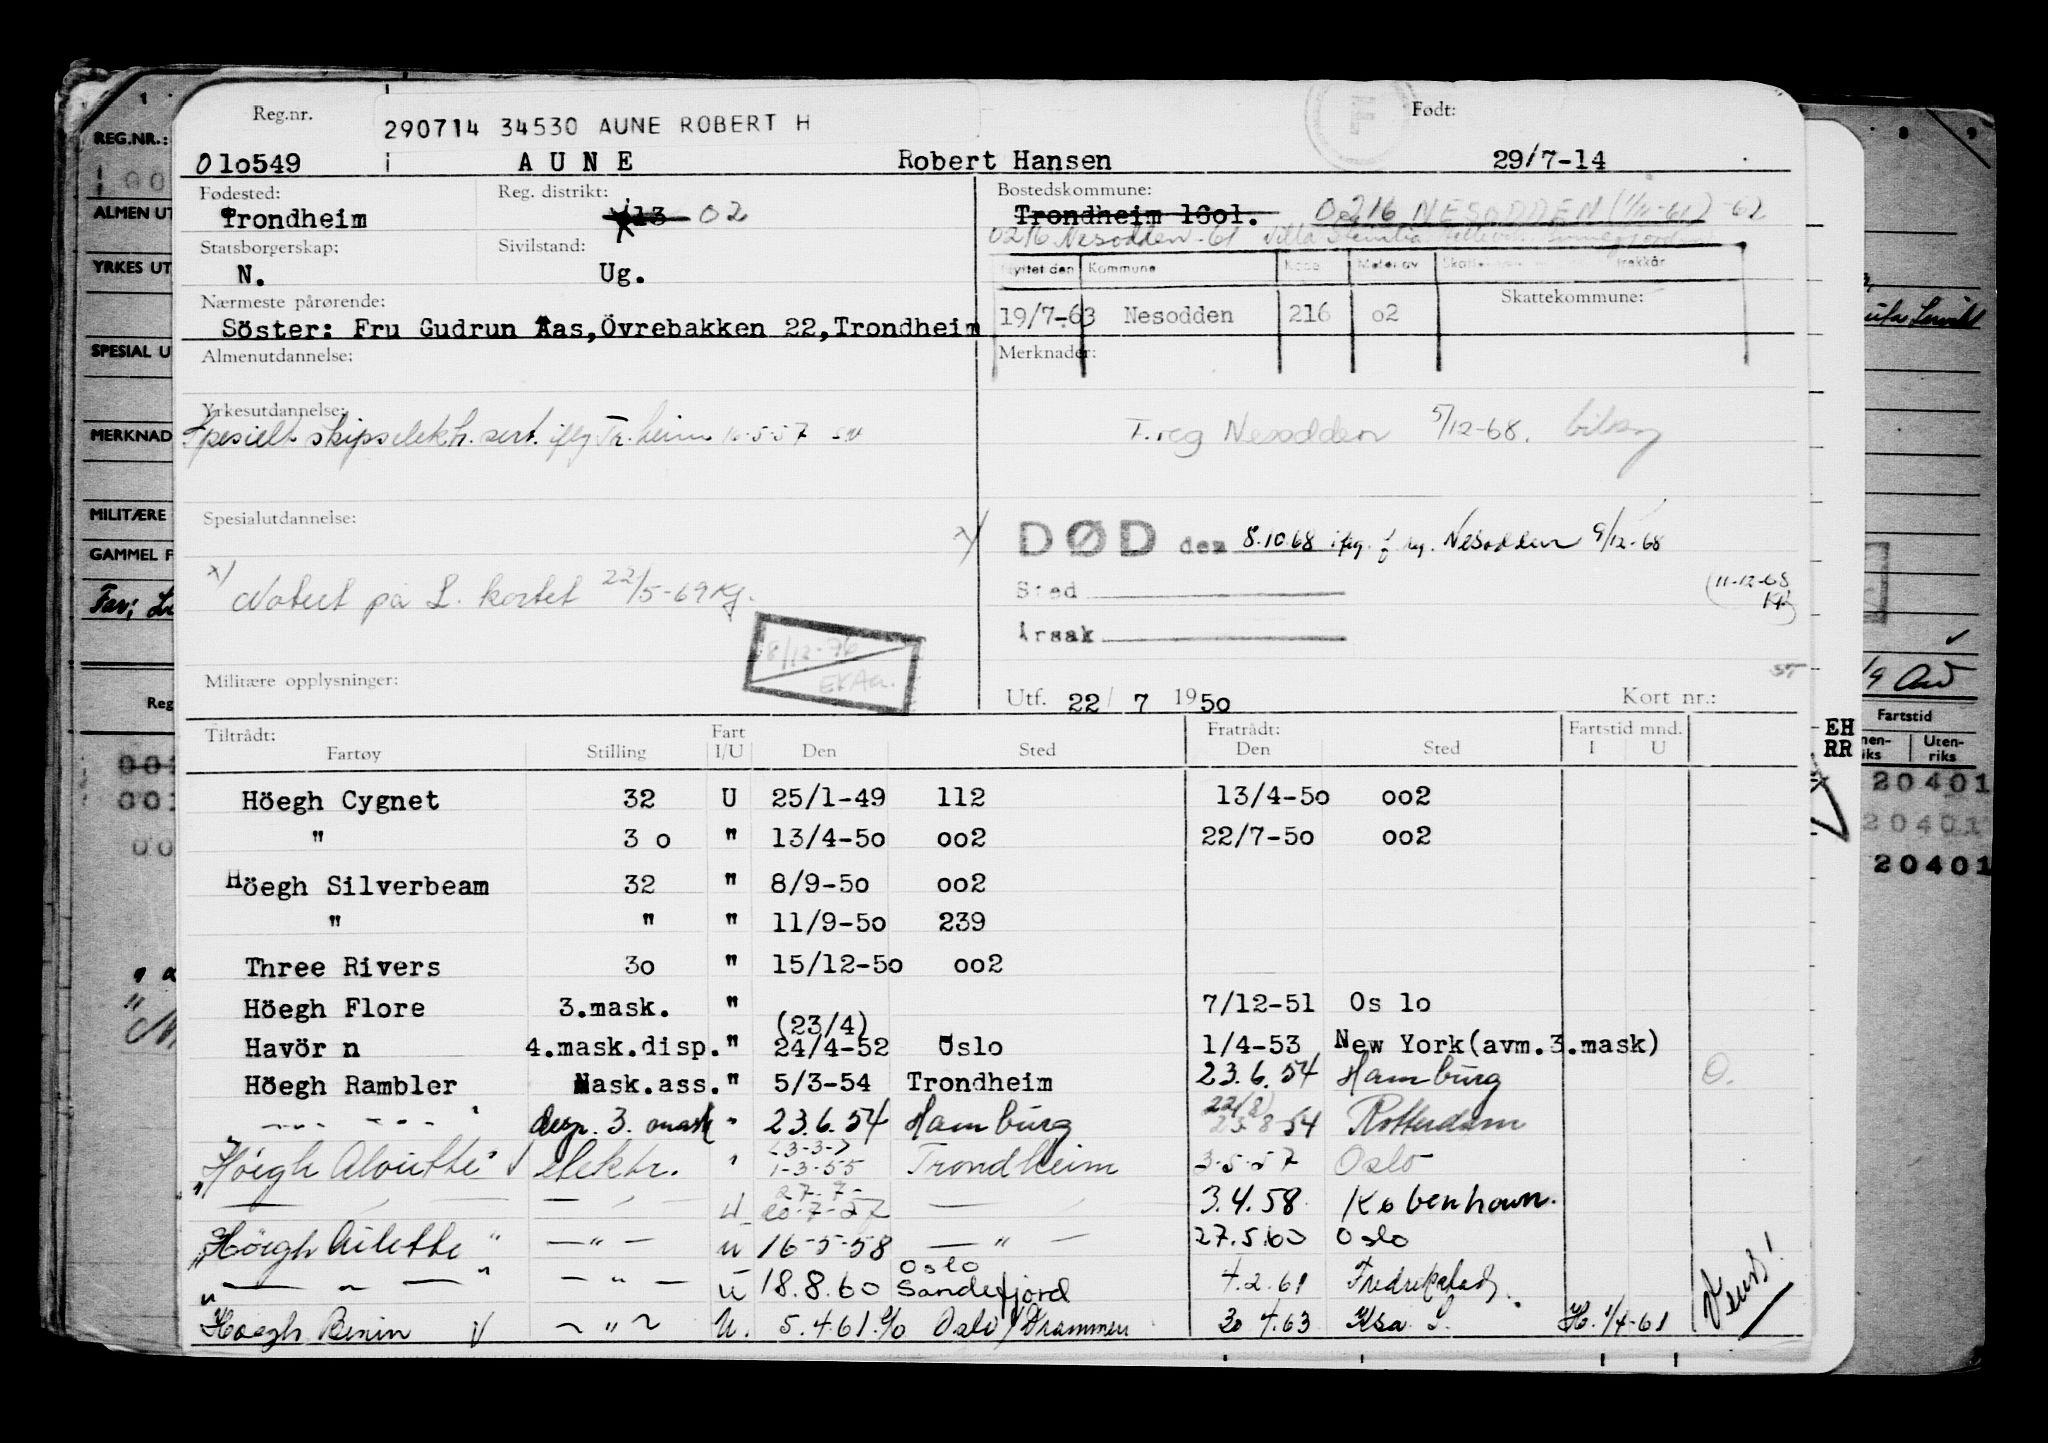 Reg.nr.
290714 34530 AUNE ROBERT H
Født:
010549 AUNE Robert Hansen 29/7-14
Fødested: Reg. distrikt: Bostedskommune:
Trondheim 02 Trondheim 16ol. 0216 NESODDEN -62
0216 Nesodden -61 Villa
Statsborgerskap: Sivilstand:
N. Ug.
Flyttet den Kommune Kode Meter av trekkår
Nærmeste pårørende: Skattekommune:
Söster: Fru Gudrun Aas, Övrebakken 22, Trondheim
19/7-63 Nesodden 216 o2
Almenutdannelse: Merknader:
Yrkesutdannelse:
Spesielt skipselektr. sert. iflg Tr.heim 16-5-57
F.reg Nesodden 5/12-68.
Spesialutdannelse:
x) DØD den 8.10.68 iflg. f. reg. Nesodden 9/12-68
x) Notert på L. kortet 22/5-69 Kg.
Sted
(11-12-68
Årsak
8/12-76
EKAa.
Militære opplysninger:
Utf. 22/ 7 1950 Kort nr.:
Tiltrådt: Fart Fratrådt: Fartstid mnd.
Fartøy Stilling I/U Den Sted Den Sted I U
Höegh Cygnet 32 U 25/1-49 112 13/4-5o oo2
" 3 o " 13/4-5o oo2 22/7-5o oo2
Höegh Silverbeam 32 " 8/9-5o oo2
" " " 11/9-5o 239
Three Rivers 3o " 15/12-5o oo2
Höegh Flore 3.mask. " 7/12-51 Os lo
(23/4)
Havör n 4.mask.disp. " 24/4-52 Oslo 1/4-53 New York(avm.3.mask)
Höegh Rambler Mask.ass. " 5/3-54 Trondheim 23.6.54 Hamburg O.
— " — disp. 3. mask " 23.6.54 Hamburg 23-8-54 Rotterdam
22/8)
"Höigh Alouette" elektr. " 1-3-55 Trondheim 3-5-57 Oslo
27-7-
" — — — U 20-7-57 — 3.4.58. København.
"Höigh Ailette" — " — u 16-5-58 — " — 27.5.60 Oslo
Oslo
" — " — " — " — u 18.8.60 Sandefjord 4.2.61 Fredrikstad
Höegh Benin ~ " ~ U. 5.4.61. Oslo/Drammen 30 4.63 Ksa. L. H. 1/4-61
Vendt!
REG.NR.:
ALMEN UT
YRKES UT
SPESIAL U
MERKNAD
MILITÆRE
GAMMEL F
Far;
Reg
8 9
Fartstid
Uten-
riks
20401
20401
20401
EH
RR